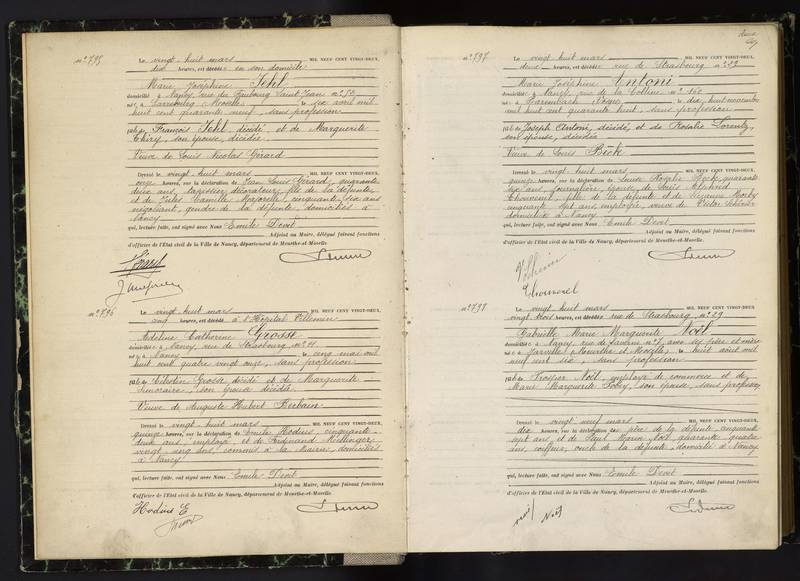 n° 795
Le vingt-huit mars MIL NEUF CENT VINGT-DEUX,
dix heures, est décédée en son domicile
Marie Joséphine Jehl
domiciliée à Nancy, rue du Faubourg Saint Jean n° 53
née à Sarrebourg, Moselle, le six avril mil
huit cent quarante neuf, sans profession
fille de François Jehl, décédé et de Marguerite
Thiry, son épouse, décédée
Veuve de Louis Nicolas Gérard
Dressé le vingt-huit mars MIL NEUF CENT VINGT-DEUX,
onze heures, sur la déclaration de Jean Louis Gérard, quarante
ans, tapissier décorateur, fils de la défunte
et de Jules Camille Majorelle, cinquante-six ans
négociant, gendre de la défunte, domiciliés à
Nancy
qui, lecture faite, ont signé avec Nous Emile Devit
Adjoint au Maire, délégué faisant fonctions
d'officier de l'Etat civil de la Ville de Nancy, département de Meurthe-et-Moselle.
n° 796
Le vingt-huit mars MIL NEUF CENT VINGT-DEUX,
cinq heures, est décédée à l'Hôpital Villemin
Adeline Catherine Grosse
domiciliée à Nancy, rue de Strasbourg n° 11
née à Nancy le cinq mai mil
huit cent quatre vingt onze, sans profession
fille de Célestin Grosse, décédé et de Marguerite
son épouse décédée
Veuve de Auguste Hubert Berbain
Dressé le vingt-huit mars MIL NEUF CENT VINGT-DEUX,
quinze heures, sur la déclaration de Emile Hodius, cinquante
deux ans, employé, et de Ferdinand
vingt cinq ans, commis à la Mairie, domiciliés
à Nancy
qui, lecture faite, ont signé avec Nous Emile Devit
Adjoint au Maire, délégué faisant fonctions
d'officier de l'Etat civil de la Ville de Nancy, département de Meurthe-et-Moselle.
Hodius E
n° 797
Le vingt-huit mars MIL NEUF CENT VINGT-DEUX,
douze heures, est décédée rue de Strasbourg n°
Marie Joséphine Antoni
domiciliée à Nancy, rue de la Colline n° 160
née à le dix huit novembre
mil huit cent quarante huit, sans profession
fille de Joseph Antoni, décédé, et de Rosalie Lorentz,
son épouse, décédée
Veuve de Louis Bick
Dressé le vingt-huit mars MIL NEUF CENT VINGT-DEUX,
quinze heures, sur la déclaration de Louise Rosalie Bick, quarante
six ans, journalière, épouse de Louis Alfred
Thouvenel, fille de la défunte et de Suzanne
cinquante sept ans, employée, veuve de Victor
domiciliées à Nancy
qui, lecture faite, ont signé avec Nous Emile Devit
Adjoint au Maire, délégué faisant fonctions
d'officier de l'Etat civil de la Ville de Nancy, département de Meurthe-et-Moselle.
Thouvenel
n° 798
Le vingt-huit mars MIL NEUF CENT VINGT-DEUX,
vingt trois heures, est décédée rue de Strasbourg n° 29
Gabrielle Marie Marguerite Noël
domiciliée à Nancy, rue de n° 1 avec ses père et mère
née à Jarville, Meurthe et Moselle, le huit août mil
neuf cent six, sans profession
fille de Prosper Noël, employé de commerce et de
Marie Marguerite son épouse, sans profession
Dressé le vingt neuf mars MIL NEUF CENT VINGT-DEUX,
dix heures, sur la déclaration du père de la défunte, cinquante
sept ans et de Paul Marie Noël quarante quatre
ans, coiffeur, oncle de la défunte, domiciliés à Nancy
qui, lecture faite, ont signé avec Nous Emile Devit
Adjoint au Maire, délégué faisant fonctions
d'officier de l'Etat civil de la Ville de Nancy, département de Meurthe-et-Moselle.
Noël Noël